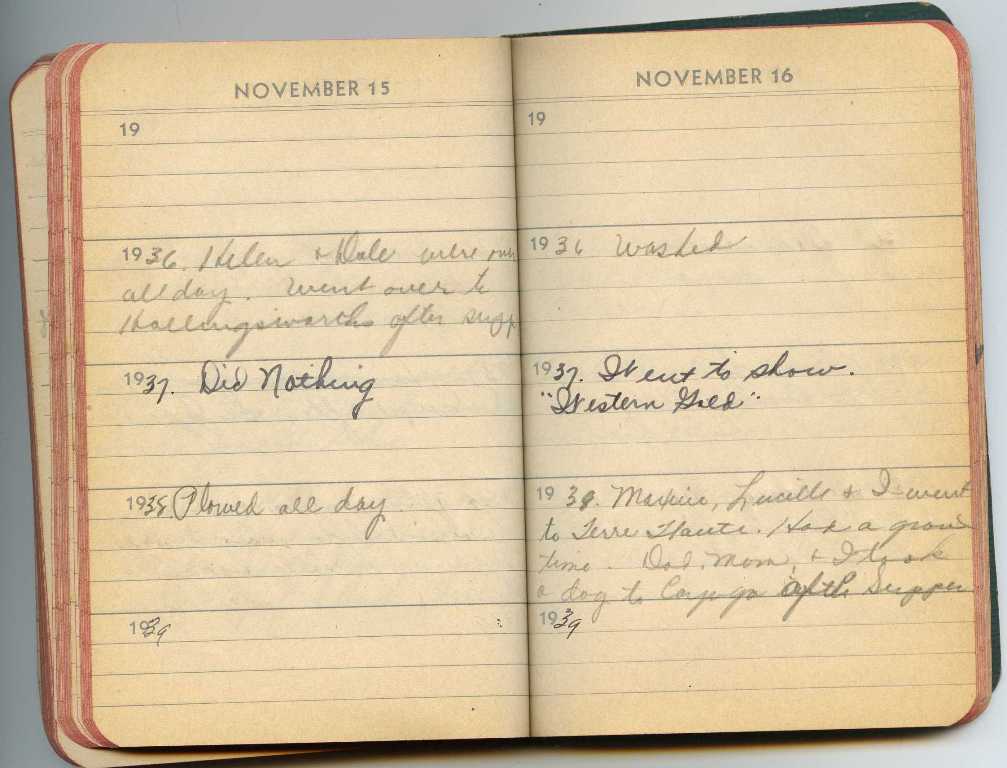 NOVEMBER 15
19
1936. Helen & Dale were over
all day. Went over to
Hollingsworths after supp
1937. Did Nothing
1938. Plowed all day
1939
NOVEMBER 16
19
1936 Washed
1937. Went to show.
"Western Gold".
1938. Maxine, Lucille & I went
to Terre Haute. Had a grand
time. Dad, Mom, & I took
a dog to Cayuga after supper
1939